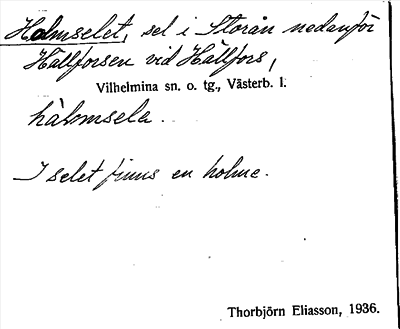 Holmselet, sel i Storån nedanför
Hällforsen vid Hällfors,
Vilhelmina sn. o. tg., Västerb. l.
hålmsela.
I selet finns en holme.
Thorbjörn Eliasson, 1936.